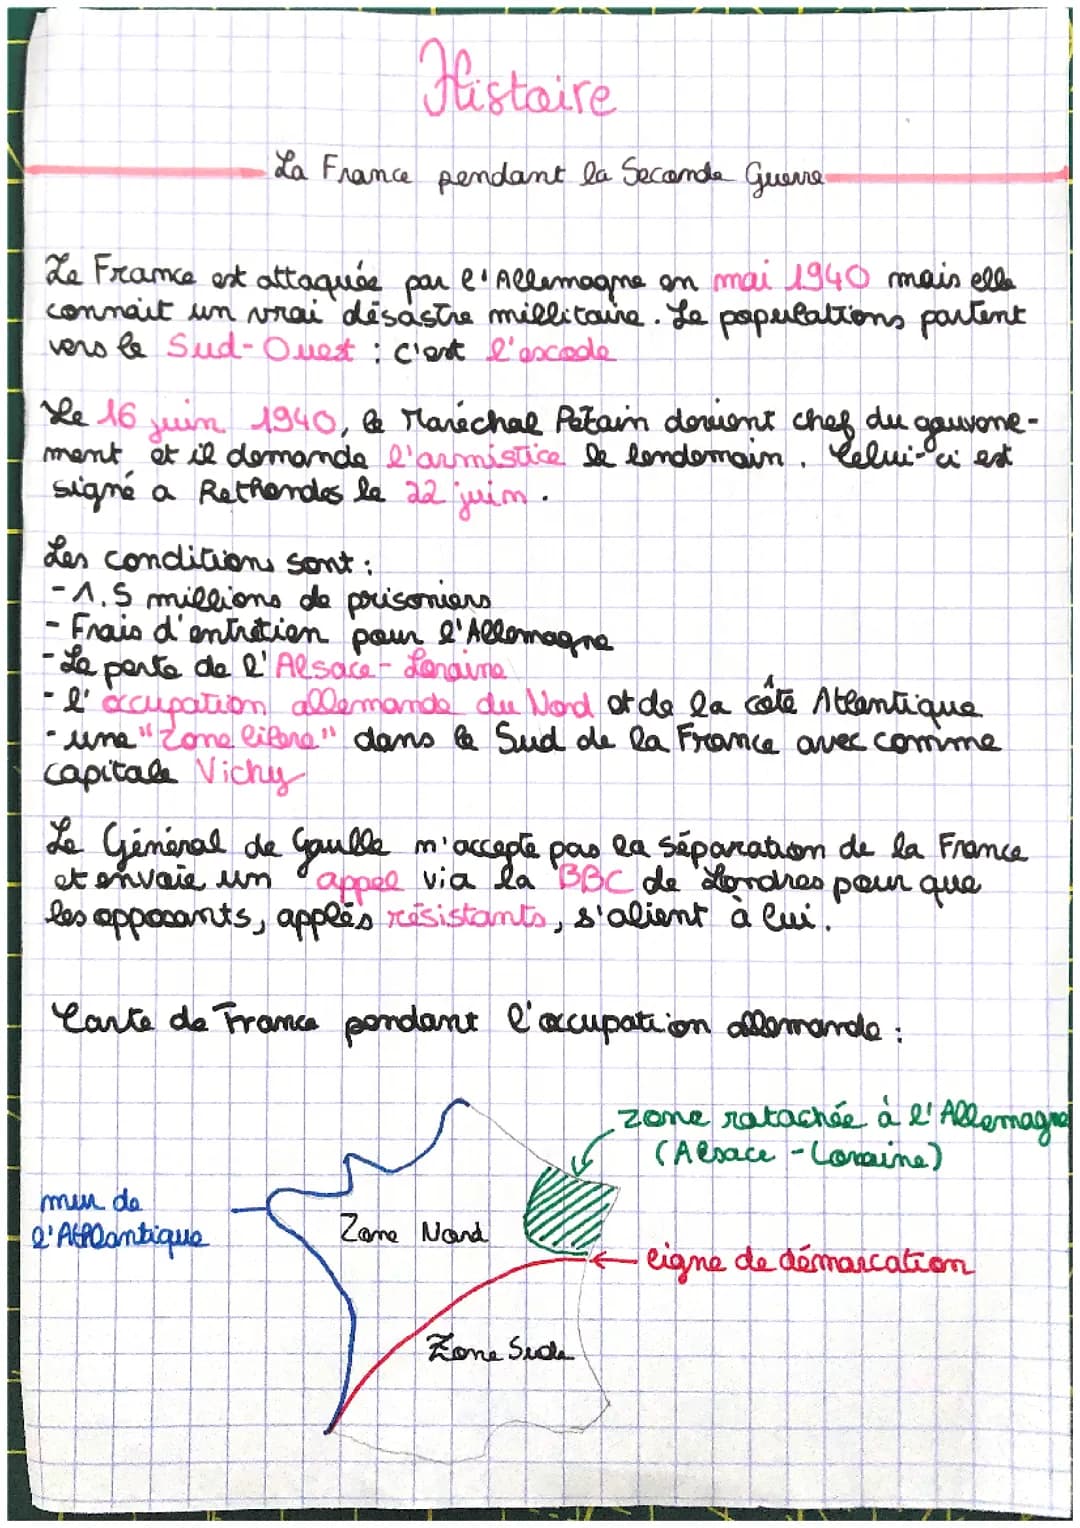 Histoire
La France pendant la Seconde Guerre
La France est attaquée par l'Allemagne en mai 1940 mais elle
connait un vrai désastre millitaire. Le populations partent
vers le Sud-Ouest : c'est l'exode
Le 16 juin 1940, le Maréchal Pétain devient chef du gouverne-
ment et il demande l'armistice le lendemain. Celui-ci est
signé a Rethondes le 22 juin.
Les conditions sont :
- 1.5 millions de prisoniers
- Frais d'entretien pour l'Allemagne
- La perte de l'Alsace-Loraine
- l'occupation allemande du Nord et de la côte Atlantique
- une "Zone libre" dans le Sud de la France avec comme
capitale Vichy
Le Général de Gaulle n'accepte pas la séparation de la France
et envoie un appel via la BBC de Londres pour que
les opposants, applés résistants, s'alient à lui.
Carte de France pendant l'occupation allemande :
zone ratachée à l'Allemagne
(Alsace-Loraine)
mur de
l'Atlantique
Zone Nord
ligne de démarcation
Zone Sude